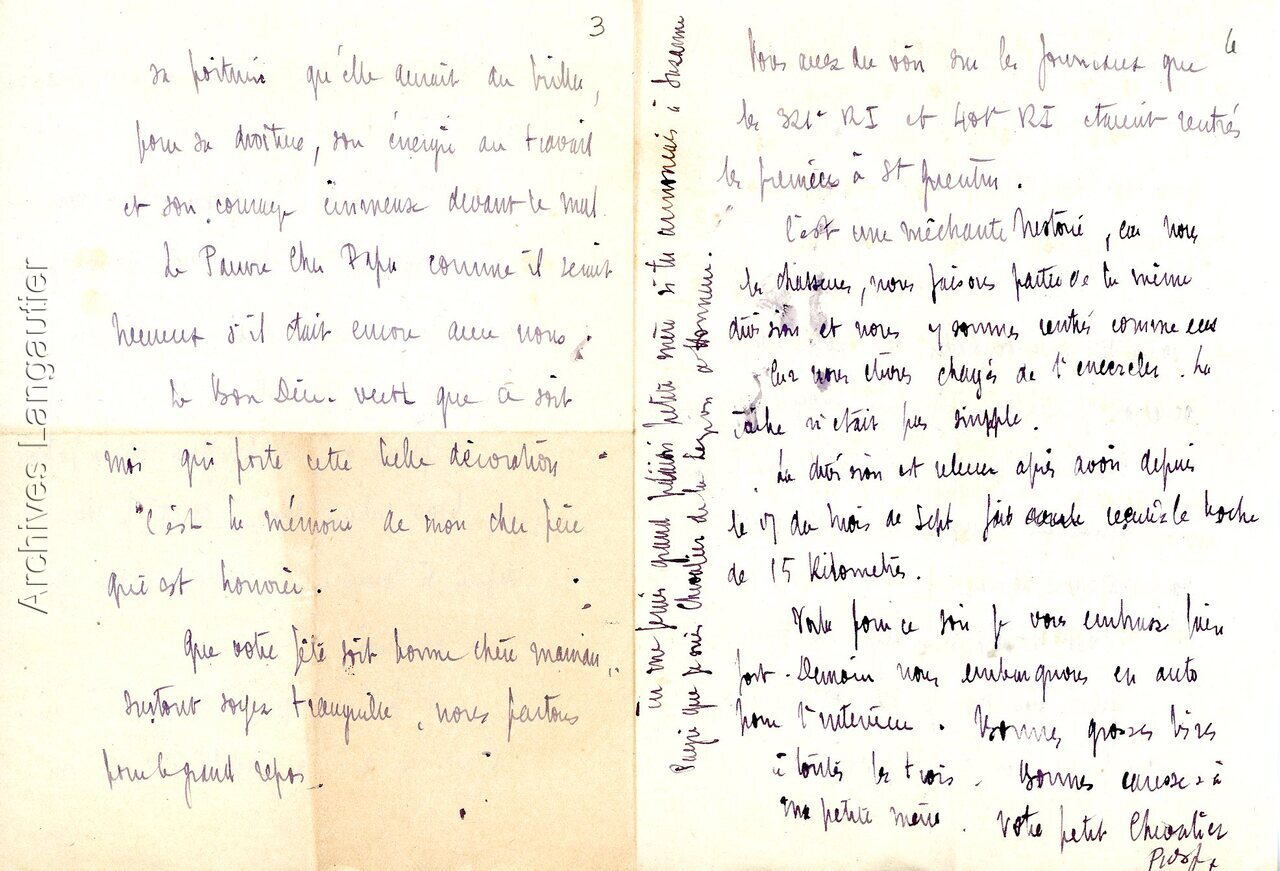 3
sa poitrine qu'elle aurait du briller,
pour sa droiture, son énergie au travail
et son courage devant le mal.
Le Pauvre Cher Papa comme il serait
heureux s'il était encore avec nous.
Le Bon Dieu veut que ce soit
moi qui porte cette belle décoration
C'est la mémoire de mon cher père
qui est honorée.
Que votre fête soit bonne chère maman,
surtout soyez tranquille, nous partons
pour le grand repos.
tu me ferais grand plaisir petite mère si tu annonçais à Suzanne
que je suis Chevalier de la Legion d'Honneur.
4
Vous avez du voir sur les journeaux que
les 321e RI et 401e RI étaient rentrés
les premiers à St Quentin.
C'est une méchante histoire, car nous
les chasseurs, nous faisons partie de la même
division et nous y sommes rentrés comme eux
Car nous étions chargés de l'encercler. La
tâche n'était pas simple.
La division est relevée après avoir depuis
le 17 du mois de Sept fait reculer le boche
de 15 Kilometres.
Voila pour ce soir je vous embrasse bien
fort. Demain nous embarquons en auto
pour l'interieur. Bonnes grosses bises
à toutes les trois. Bonnes caresses à
ma petite mère. Votre petit Chevalier
Archives Langautier